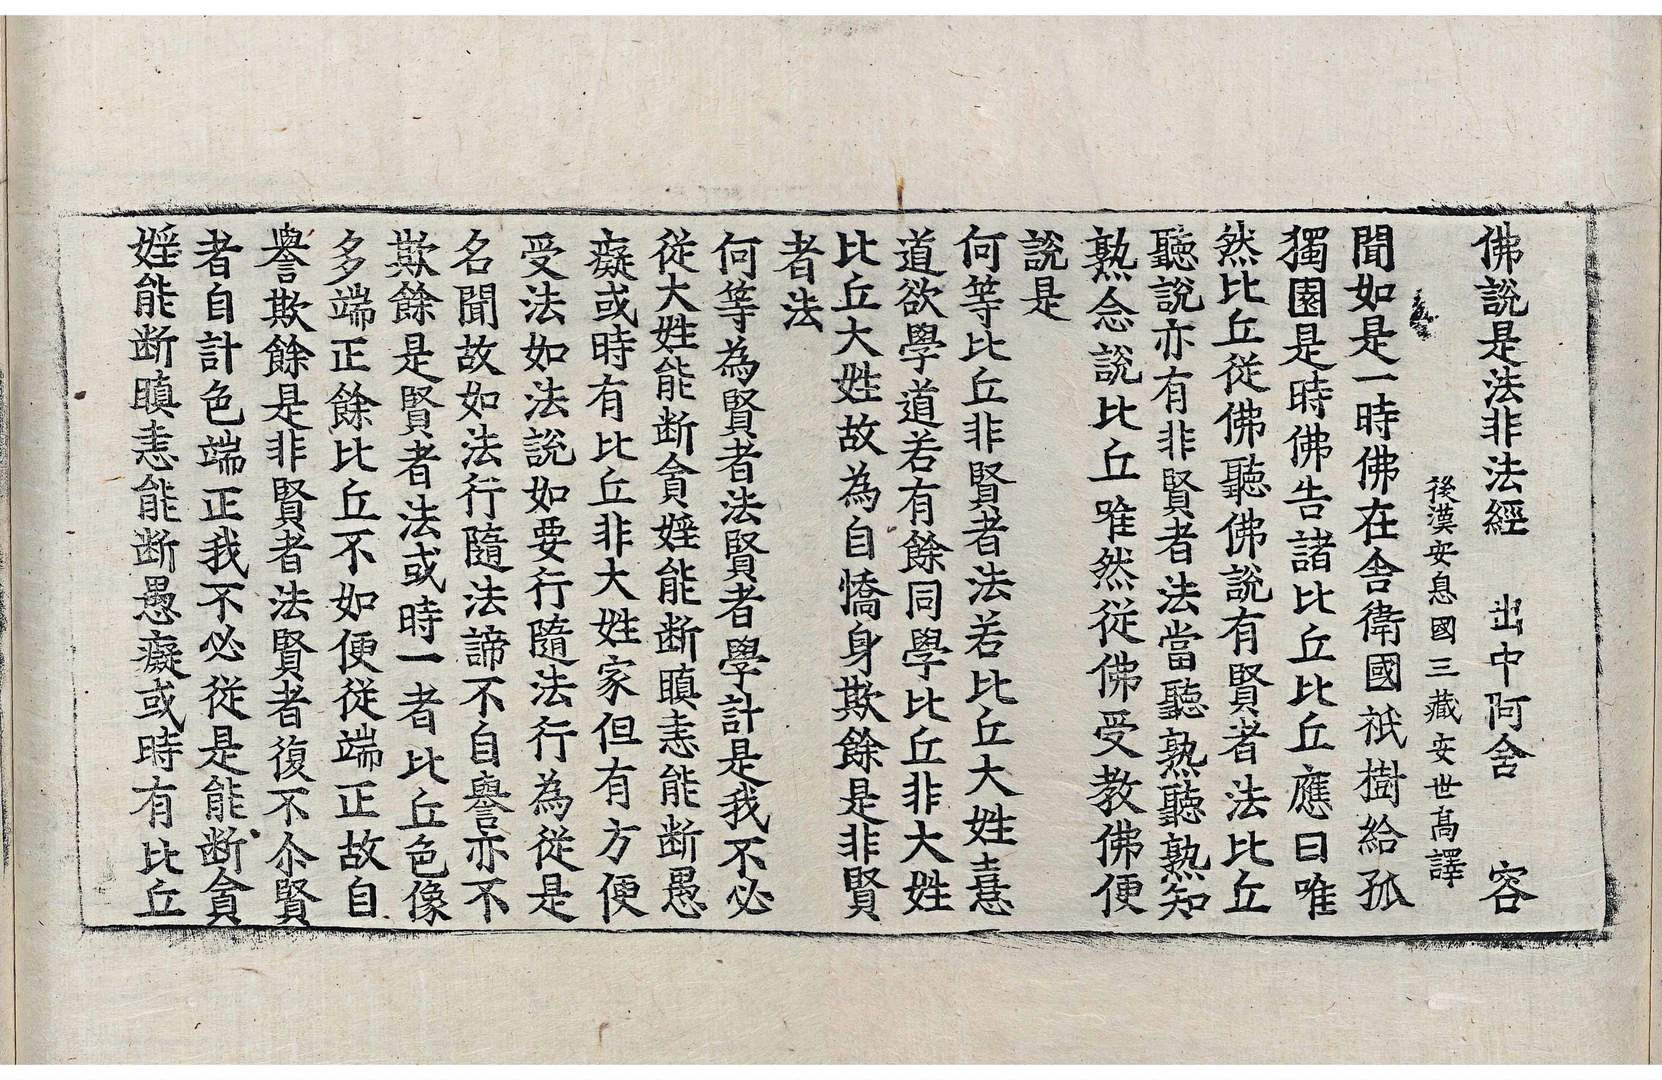 佛說是法非法經 出中阿含 容
後漢安息國三藏安世高譯
聞如是一時佛在舍衛國祇樹給孤
獨園是時佛告諸比丘比丘應曰唯
然比丘從佛聽佛說有賢者法比丘
聽說亦有非賢者法當聽熟聽熟知
熟念說比丘唯然從佛受教佛便
說是
何等比丘非賢者法若比丘大姓憙
道欲學道若有餘同學比丘非大姓
比丘大姓故為自憍身欺餘是非賢
者法
何等為賢者法賢者學計是我不必
從大姓能断貪婬能断瞋恚能断愚
癡或時有比丘非大姓家但有方便
受法如法說如要行隨法行為從是
名聞故如法行隨法諦不自譽亦不
欺餘是賢者法或時一者比丘色像
多端正餘比丘不如便從端正故自
譽欺餘是非賢者法賢者復不尒賢
者自計色端正我不必從是能断貪
婬能断瞋恚能断愚癡或時有比丘